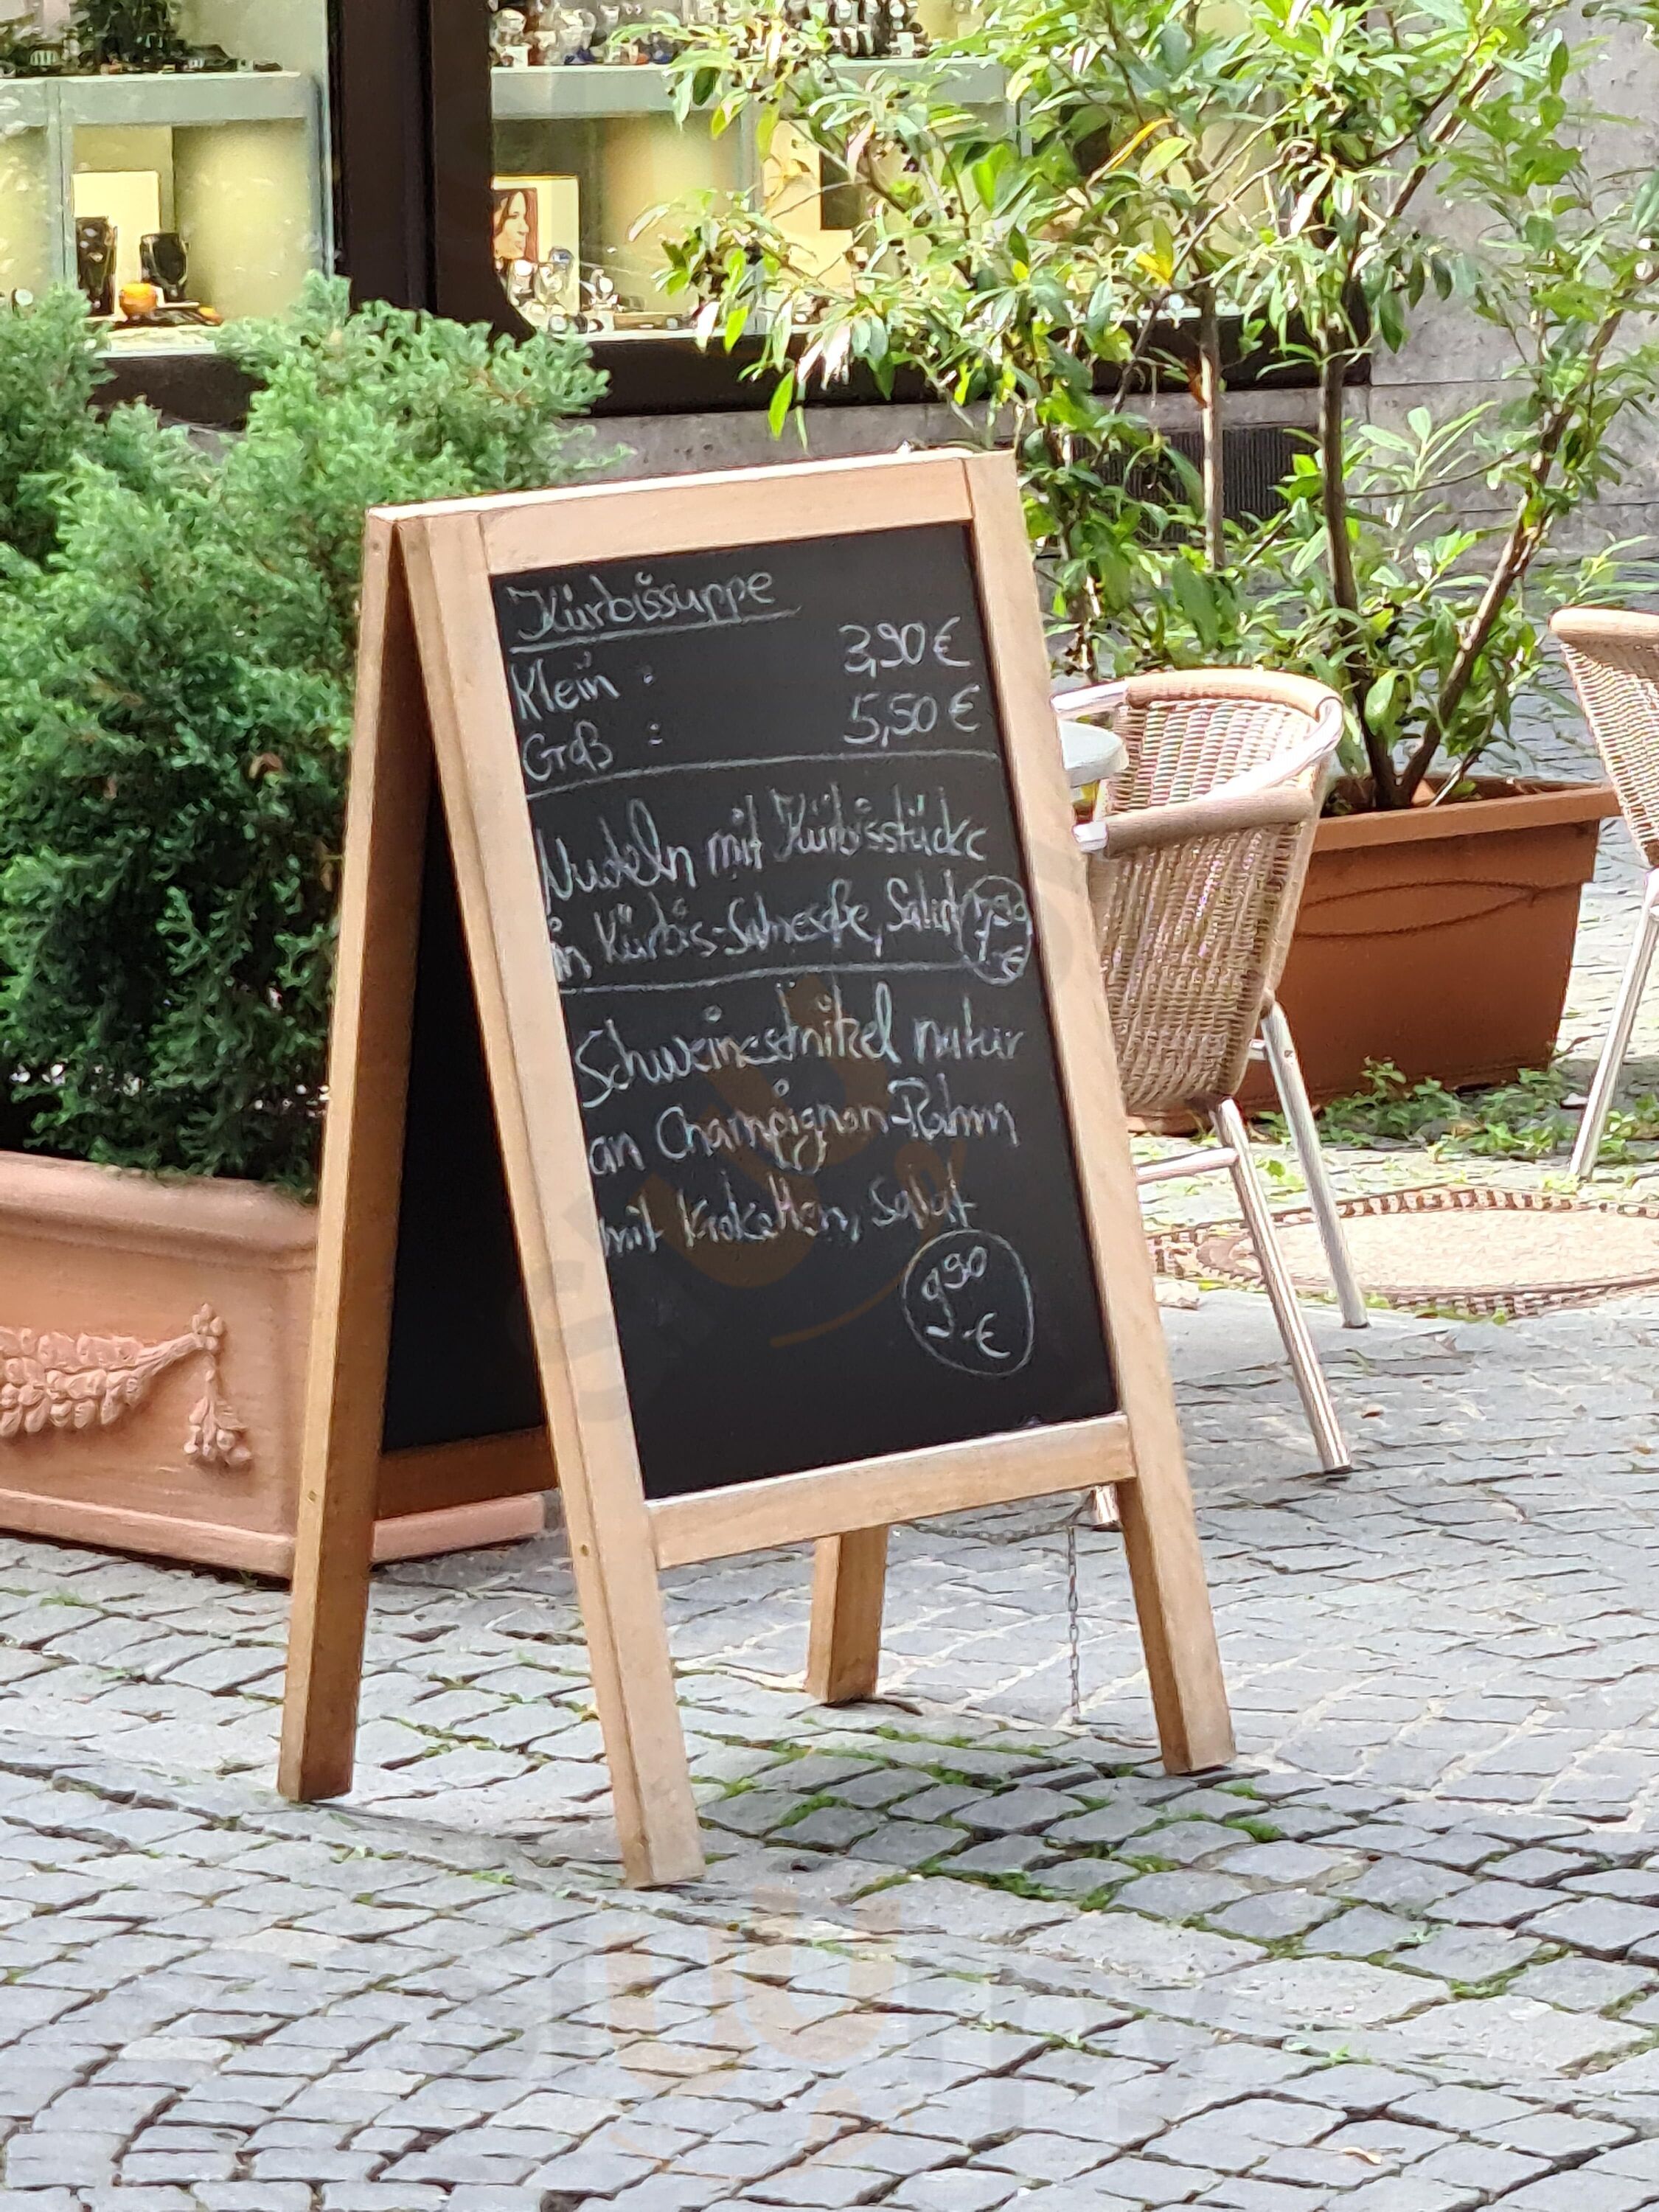 Kürbissuppe
Klein : 3,90 €
Groß : 5,50 €
Nudeln mit Kürbisstücke
in Kürbis-Sahnesoße, Salat
Schweineschnitzel natur
an Champignon-Rahm
mit Kroketten, Salat
9,90
€